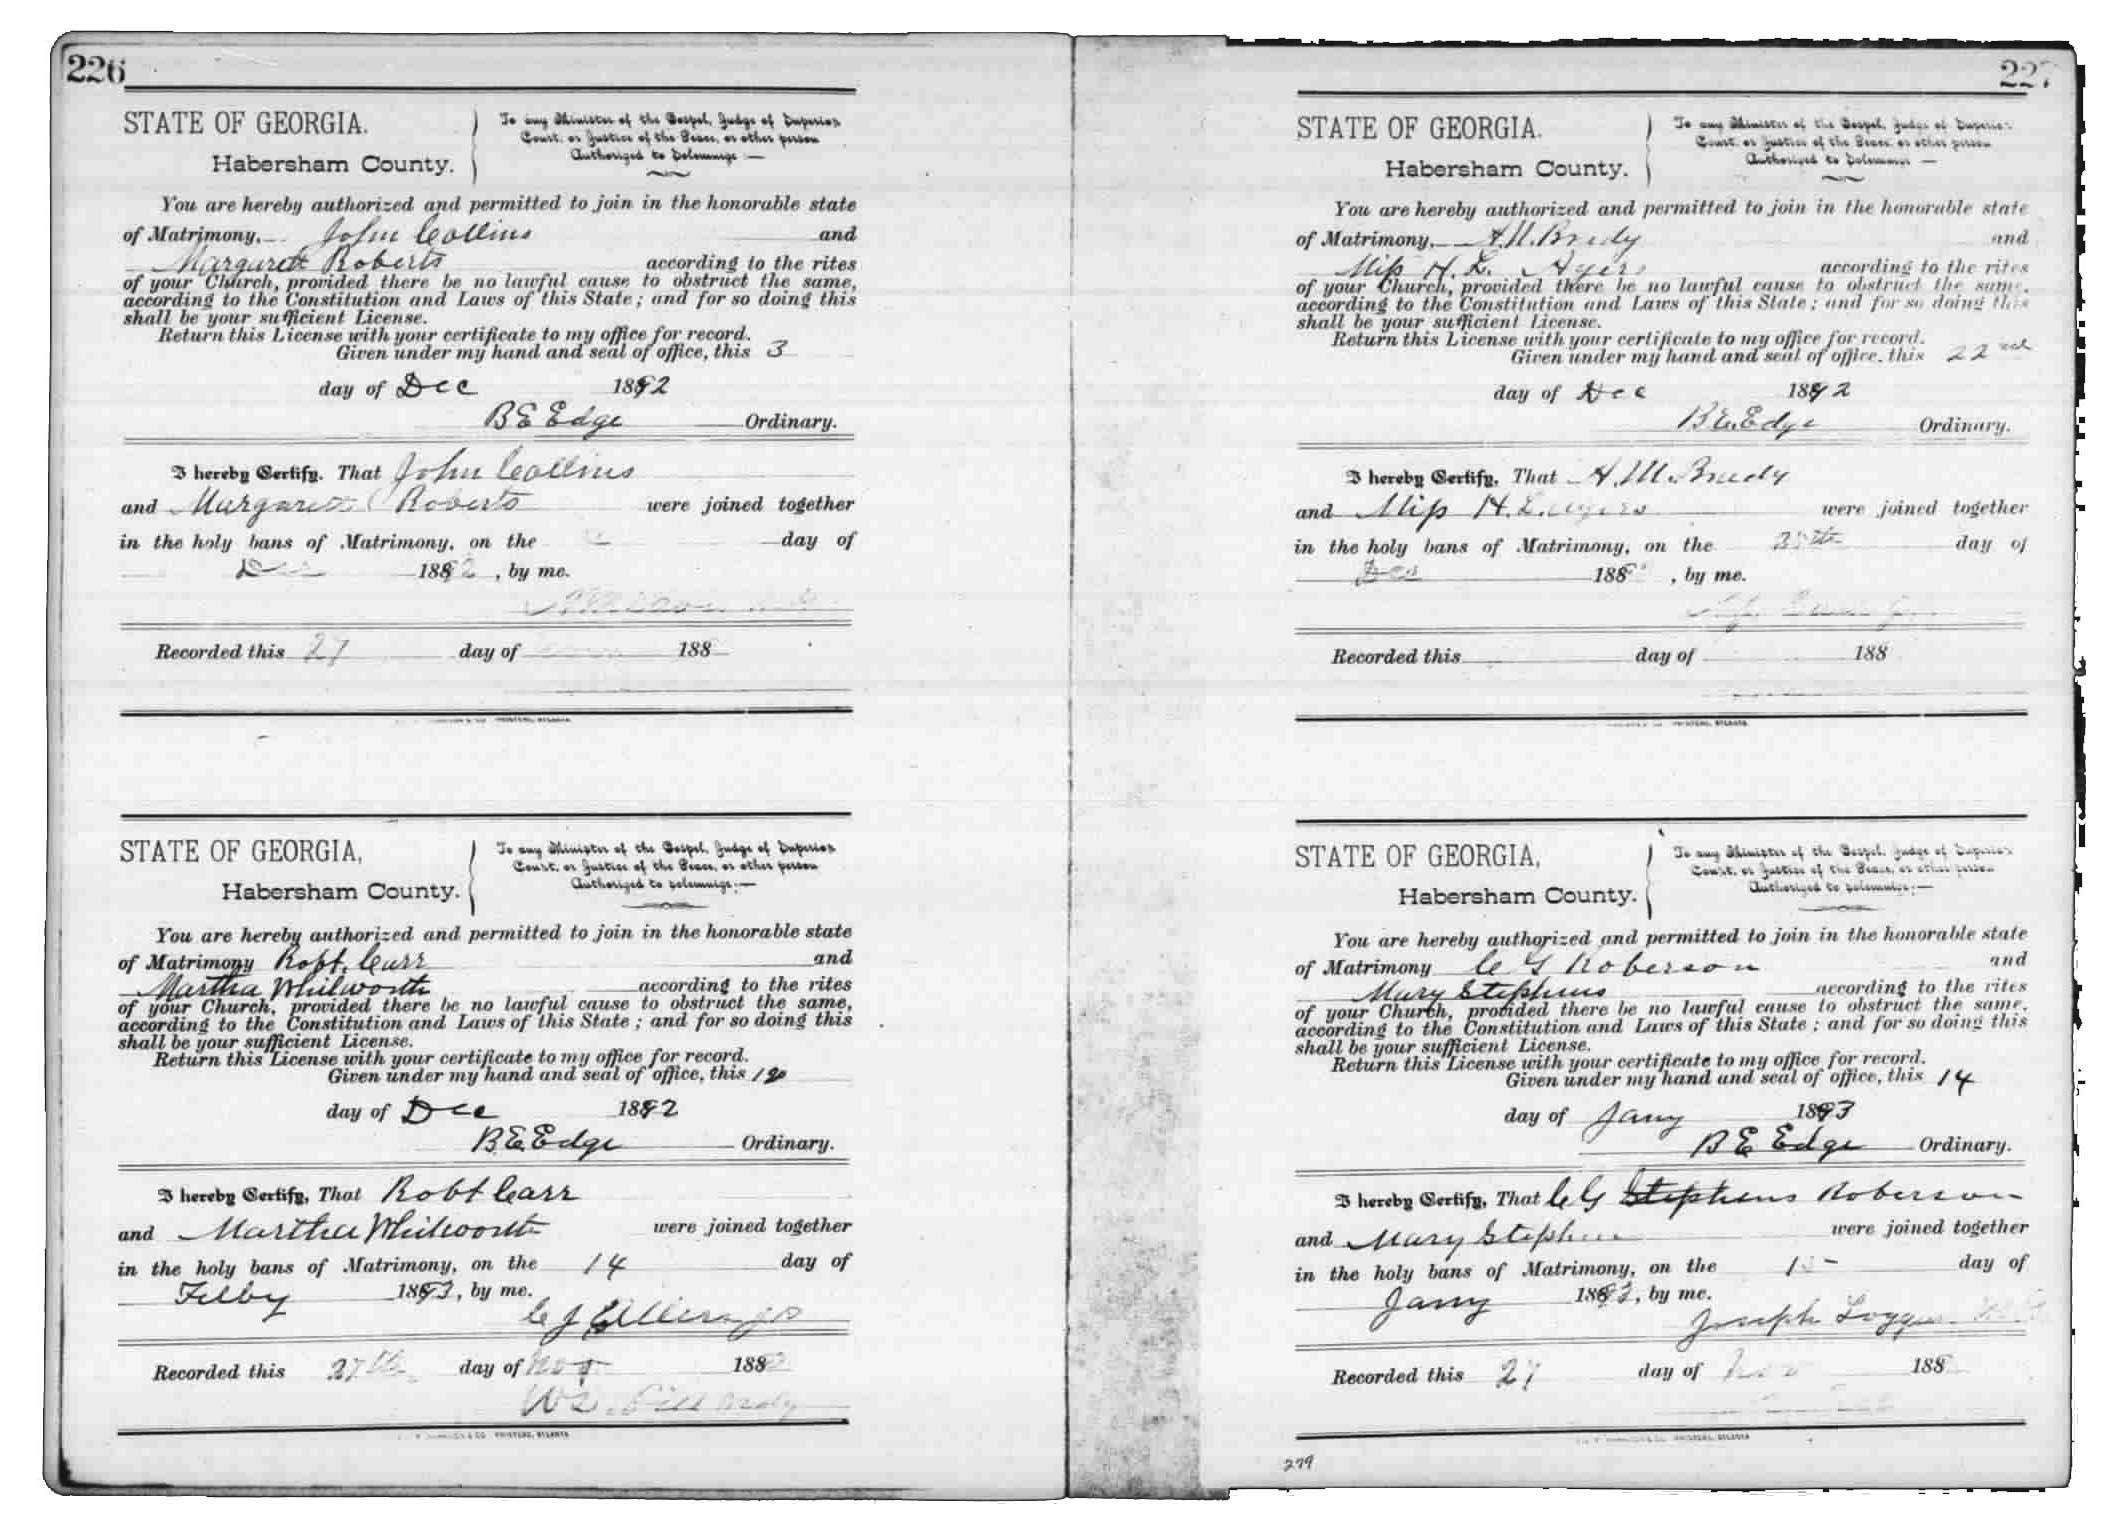 226
STATE OF GEORGIA.
Habersham County.
To any Minister of the Gospel, Judge of Superior
Court, or Justice of the Peace, or other person
Authorized to Solemnize —
You are hereby authorized and permitted to join in the honorable state
of Matrimony, John Collins and
Margarett Roberts according to the rites
of your Church, provided there be no lawful cause to obstruct the same,
according to the Constitution and Laws of this State; and for so doing this
shall be your sufficient License.
Return this License with your certificate to my office for record.
Given under my hand and seal of office, this 3
day of Dec 1892
B E Edge Ordinary.
I hereby Certify, That John Collins
and Margarett Roberts were joined together
in the holy bans of Matrimony, on the day of
Dec 1892, by me.
Recorded this 27 day of 188
STATE OF GEORGIA,
Habersham County.
To any Minister of the Gospel, Judge of Superior
Court, or Justice of the Peace, or other person
Authorized to solemnize:—
You are hereby authorized and permitted to join in the honorable state
of Matrimony Robt. Carr and
Martha Whitworth according to the rites
of your Church, provided there be no lawful cause to obstruct the same,
according to the Constitution and Laws of this State; and for so doing this
shall be your sufficient License.
Return this License with your certificate to my office for record.
Given under my hand and seal of office, this
day of Dec 1892
B E Edge Ordinary.
I hereby Certify, That Robt Carr
and Martha Whitworth were joined together
in the holy bans of Matrimony, on the 14 day of
Feby 1893, by me.
C J
Recorded this 27th day of Nov 188
227
STATE OF GEORGIA.
Habersham County.
To any Minister of the Gospel, Judge of Superior
Court, or Justice of the Peace, or other person
Authorized to Solemnize —
You are hereby authorized and permitted to join in the honorable state
of Matrimony, A. M. Brady and
Miss H. L. Ayers according to the rites
of your Church, provided there be no lawful cause to obstruct the same,
according to the Constitution and Laws of this State; and for so doing this
shall be your sufficient License.
Return this License with your certificate to my office for record.
Given under my hand and seal of office, this 22nd
day of Dec 1892
B E. Edge Ordinary.
I hereby Certify, That A. M. Brady
and Miss H. L. Ayers were joined together
in the holy bans of Matrimony, on the day of
Dec 188, by me.
Recorded this day of 188
STATE OF GEORGIA,
Habersham County.
To any Minister of the Gospel, Judge of Superior
Court, or Justice of the Peace, or other person
Authorized to solemnize:—
You are hereby authorized and permitted to join in the honorable state
of Matrimony C G Roberson and
Mary Stephens according to the rites
of your Church, provided there be no lawful cause to obstruct the same,
according to the Constitution and Laws of this State; and for so doing this
shall be your sufficient License.
Return this License with your certificate to my office for record.
Given under my hand and seal of office, this 14
day of Jany 1893
B E Edge Ordinary.
I hereby Certify, That C G Stephens Roberson
and Mary Stephens were joined together
in the holy bans of Matrimony, on the 15 day of
Jany 1893, by me.
Joseph
Recorded this 27 day of Nov 188
279